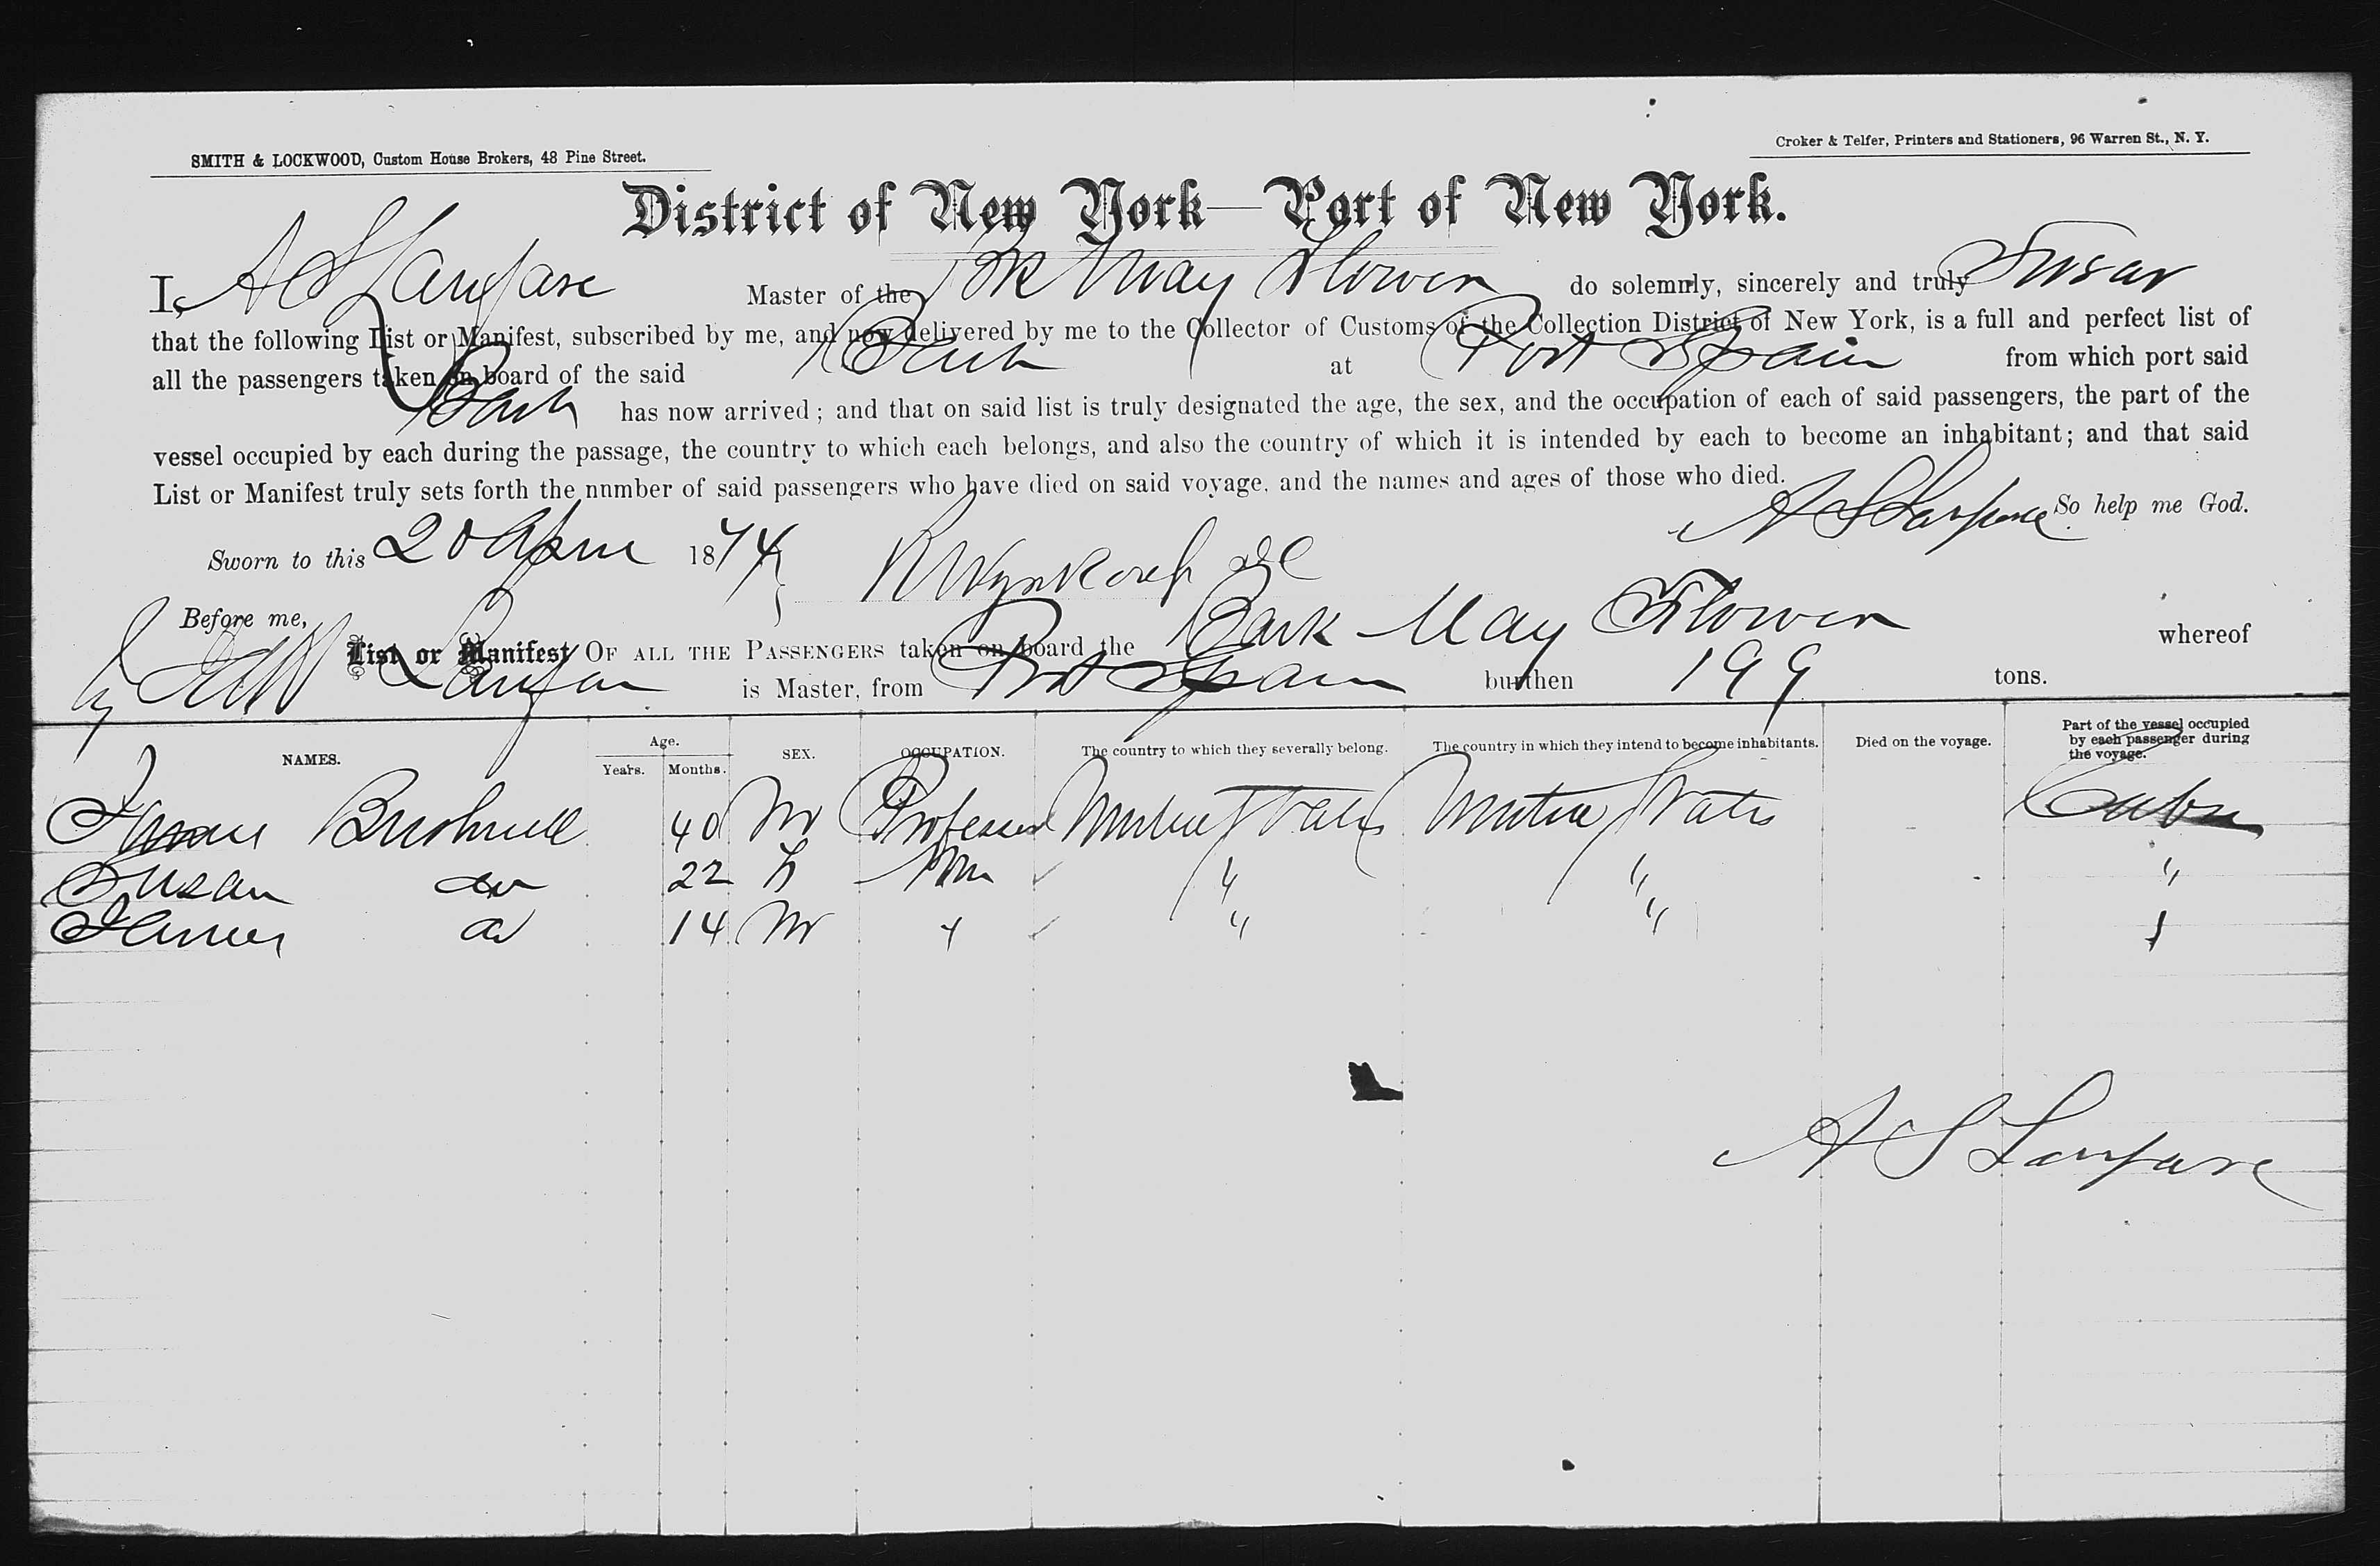 SMITH & LOCKWOOD, Custom House Brokers, 48 Pine Street.
Croker & Telfer, Printers and Stationers, 96 Warren St., N. Y.
District of New York—Port of New York.
I, A S Master of the Bk May Flower do solemnly, sincerely and truly Swear
that the following List or Manifest, subscribed by me, and now delivered by me to the Collector of Customs of the Collection District of New York, is a full and perfect list of
all the passengers taken on board of the said Bark at Port Spain from which port said
Bark has now arrived; and that on said list is truly designated the age, the sex, and the occupation of each of said passengers, the part of the
vessel occupied by each during the passage, the country to which each belongs, and also the country of which it is intended by each to become an inhabitant; and that said
List or Manifest truly sets forth the nnmber of said passengers who have died on said voyage, and the names and ages of those who died.
A S So help me God.
Sworn to this 20 April 1874
Before me,
List or Manifest OF ALL THE PASSENGERS taken on board the Bark May Flower whereof
is Master, from Port Spain burthen 199 tons.
NAMES. Age. Years. Months. SEX. OCCUPATION. The country to which they severally belong. The country in which they intend to become inhabitants. Died on the voyage. Part of the vessel occupied by each passenger during the voyage.
Bushnell 40 M Professor United States United States Cabin
Susan do 22 F " " "
do 14 M " " "
A S